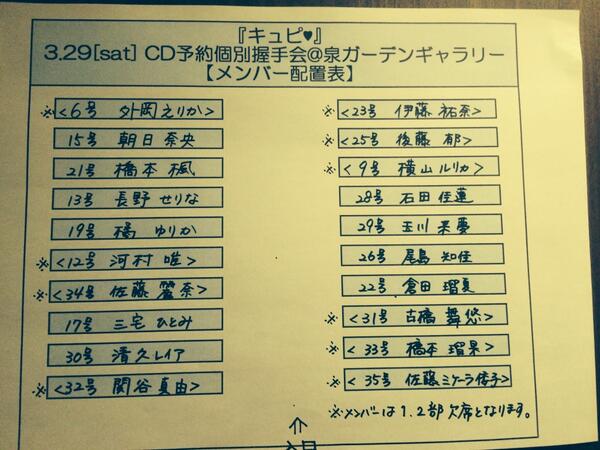 『キュピ♥』
3.29[sat] CD予約個別握手会@泉ガーデンギャラリー
【メンバー配置表】
※<6号 外岡えりか>
15号 朝日奈央
21号 橋本楓
13号 長野せりな
19号 橘ゆりか
※<12号 河村唯>
※<34号 佐藤麗奈>
17号 三宅ひとみ
30号 清久レイア
※<32号 関谷真由>
※<23号 伊藤祐奈>
※<25号 後藤郁>
※<9号 横山ルリカ>
28号 石田佳蓮
29号 玉川来夢
26号 尾島知佳
22号 倉田瑠夏
※<31号 古橋舞悠>
※<33号 橋本瑠果>
※<35号 佐藤ミケーラ倭子>
※メンバーは1.2部欠席となります。
↑
入口